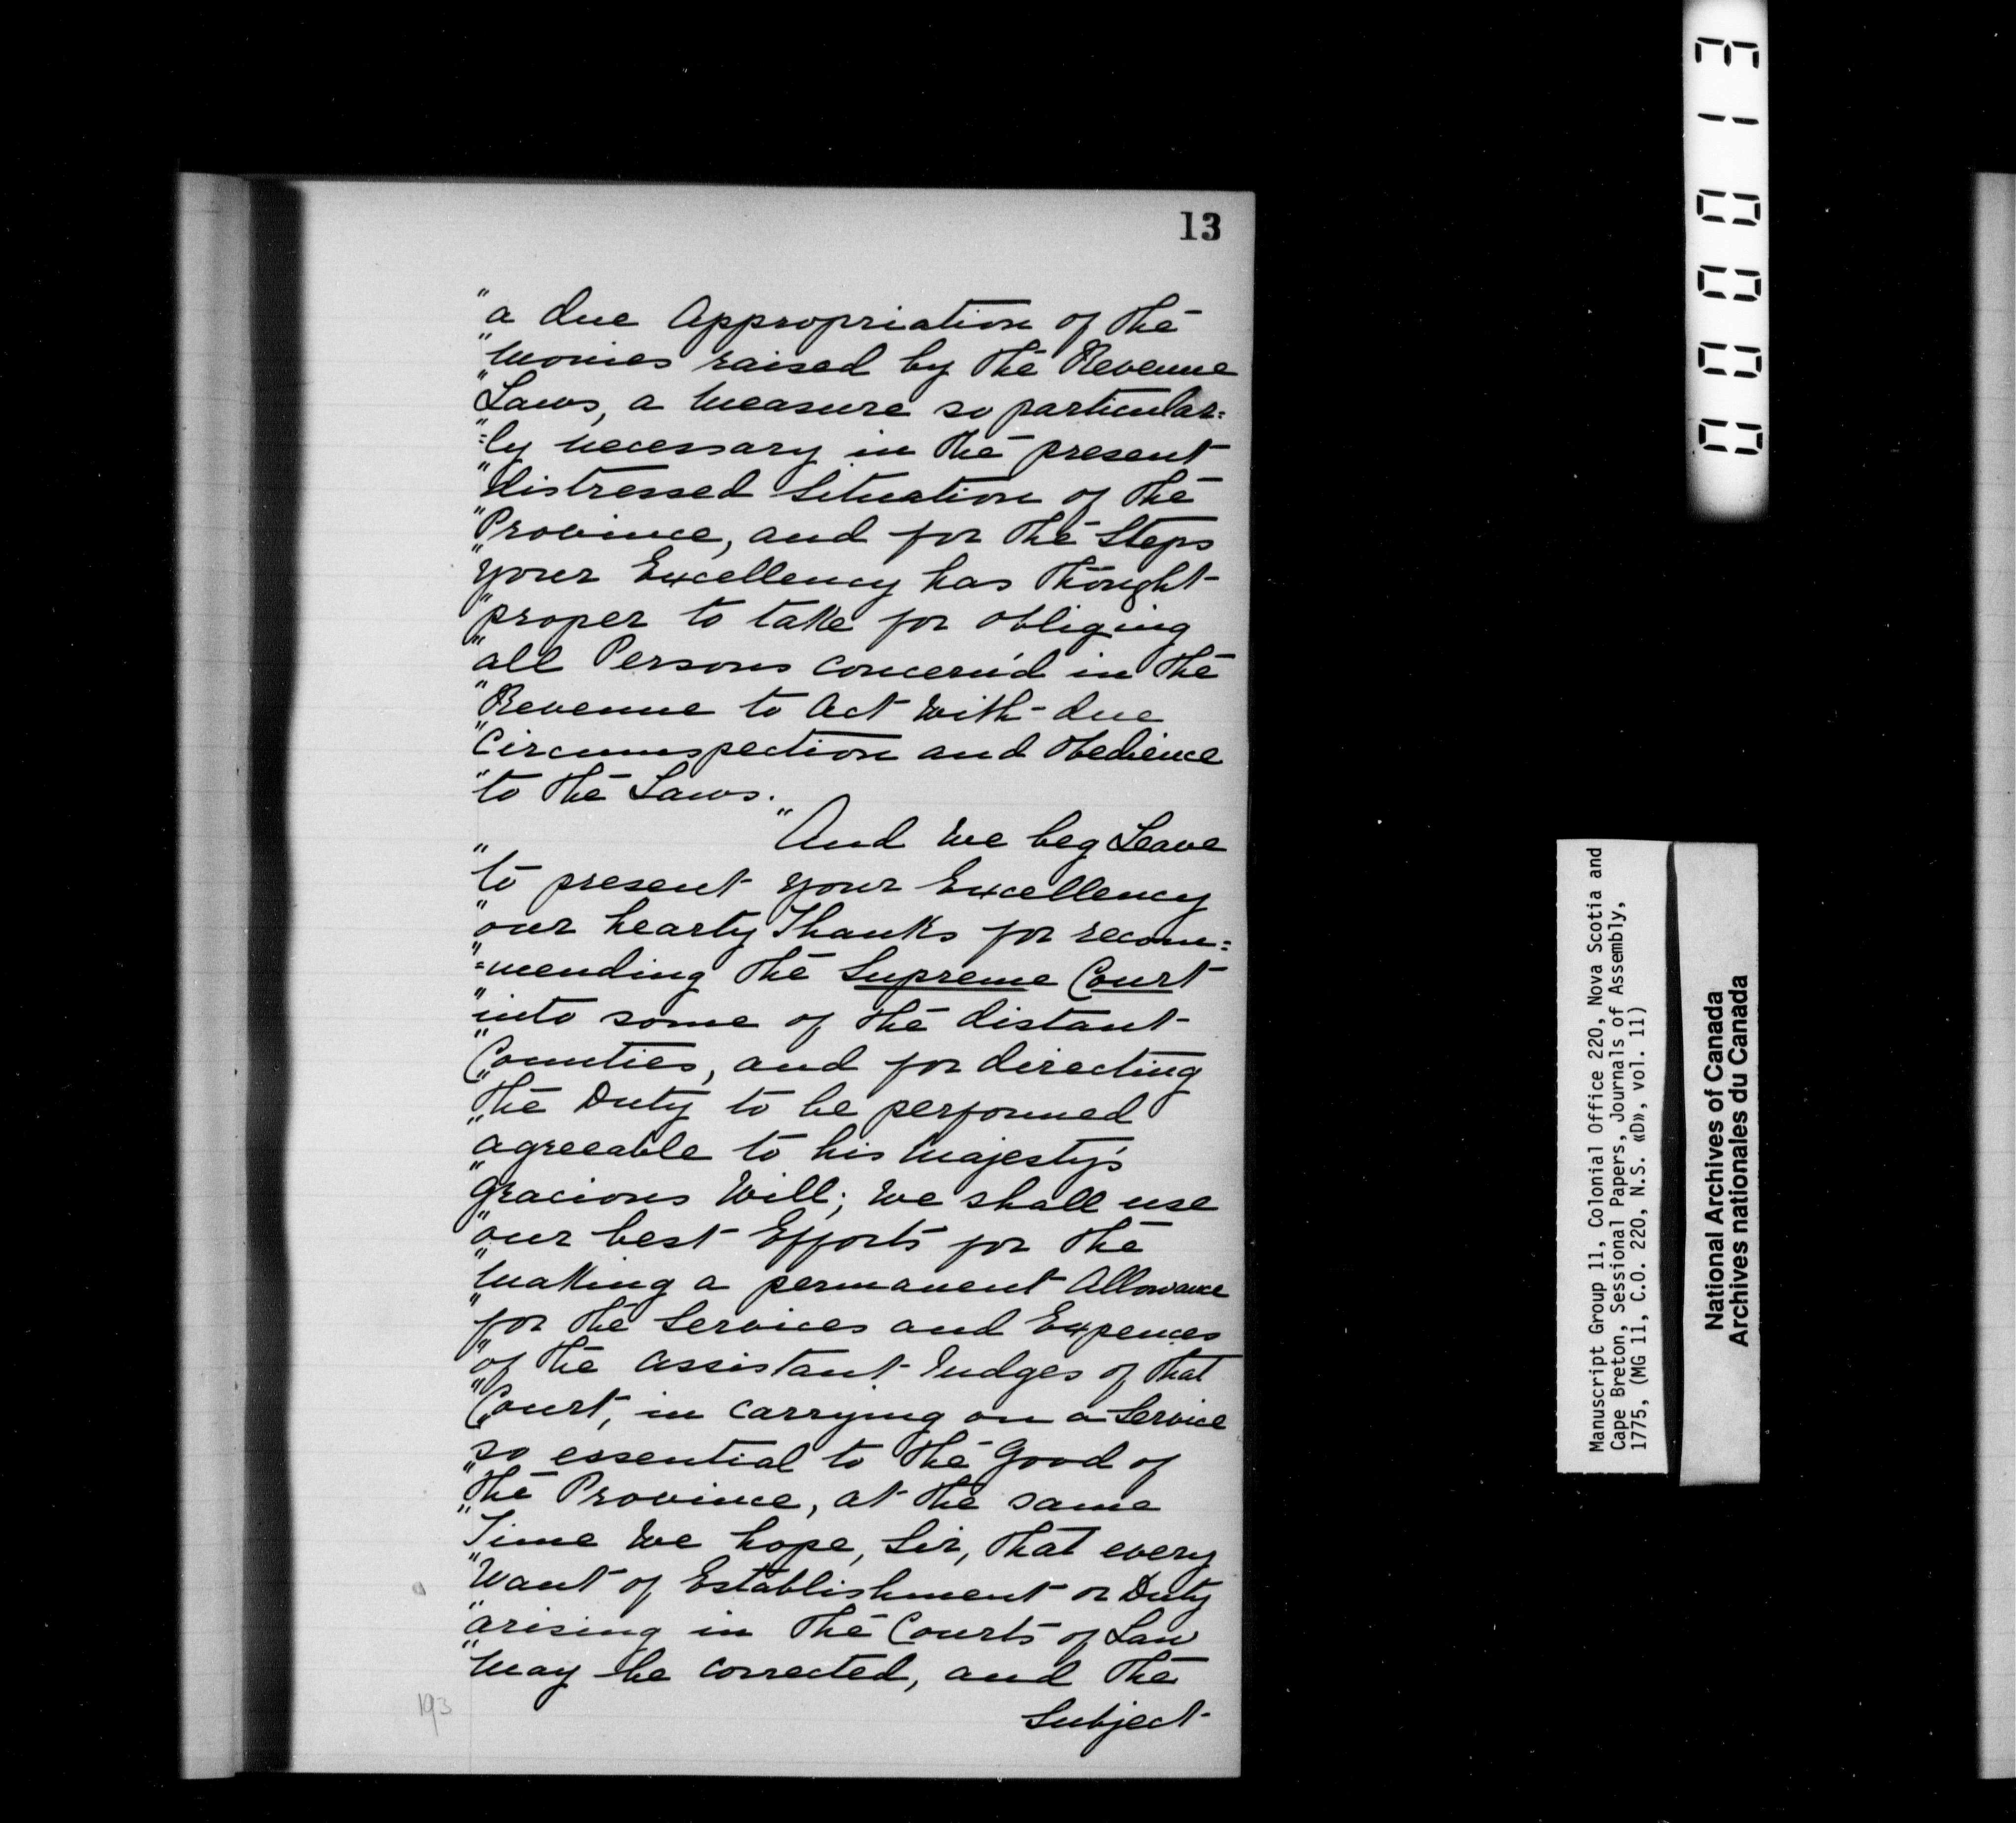 13
"a due Appropriation of the
"Monies raised by the Revenue
"Laws, a Measure so particular=
"=ly necessary in the present
"distressed Situation of the
"Province, and for the Steps
"your Excellency has thought
"proper to take for obliging
"all Persons concern'd in the
"Revenue to Act with due
"Circumspection and Obedience
"to the Laws.
"And We beg Leave
"to present your Excellency
"our hearty Thanks for recom=
"=mending the Supreme Court
"into some of the distant
"Counties, and for directing
"the Duty to be performed
"agreeable to his Majesty's
"gracious Will; We shall use
"our best Efforts for the
"making a permanent Allowance
"for the Services and Expences
"of the Assistant Judges of that
"Court, in carrying on a Service
"so essential to the Good of
"the Province, at the same
"Time We hope, Sir, that every
"Want of Establishment or Duty
"arising in the Courts of Law
"may be corrected, and the
Subject
193
000013
Manuscript Group 11, Colonial Office 220, Nova Scotia and
Cape Breton, Sessional Papers, Journals of Assembly,
1775, (MG 11, C.O. 220, N.S. «D», vol. 11)
National Archives of Canada
Archives nationales du Canada